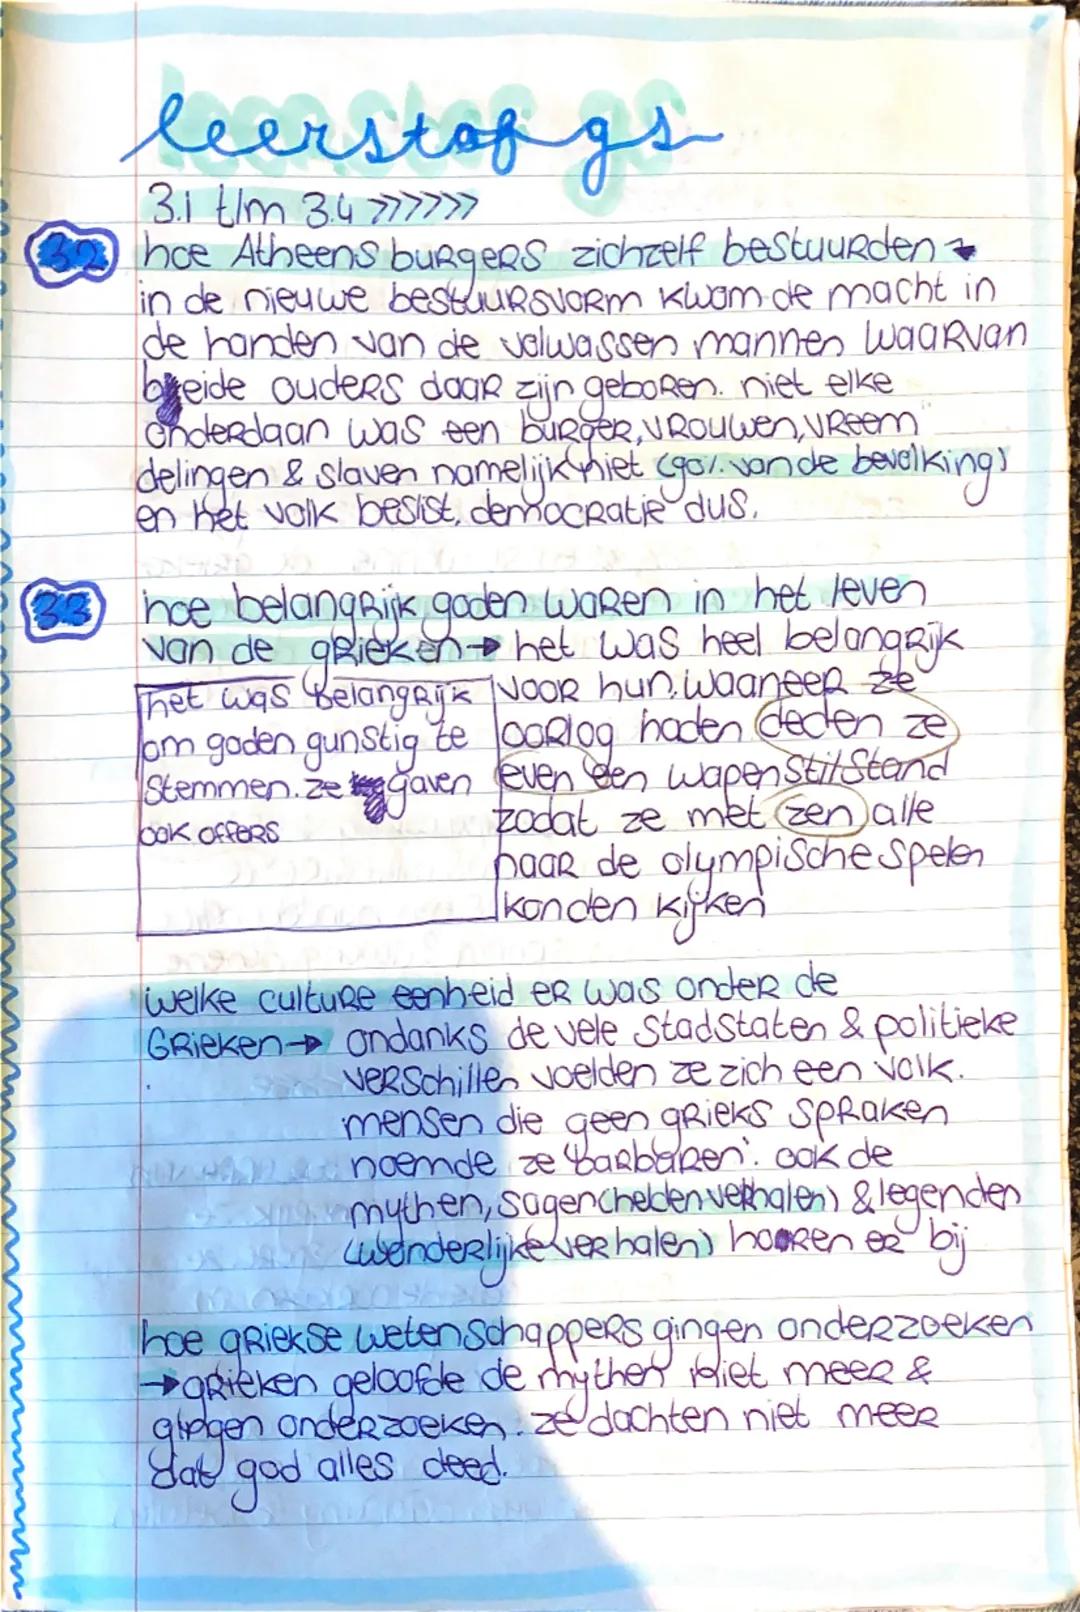 leerstof gs
3.1 t/m 3.4 >>>>>>>
3.2 hoe Atheens burgers zichzelf bestuurden →
in de nieuwe bestuursvorm kwam de macht in
de handen van de volwassen mannen waarvan
beide ouders daar zijn geboren. niet elke
onderdaan was een burger, vrouwen, vreem
delingen & slaven namelijk niet (90% van de bevolking)
en het volk beslist. democratie dus.
3.3 hoe belangrijk goden waren in het leven
van de grieken → het was heel belangrijk
voor hun. waaneer ze
oorlog haden deden ze
even een wapenstilstand
zodat ze met zen alle
naar de olympische spelen
konden kijken
het was belangrijk
om goden gunstig te
stemmen. ze gaven
ook offers
welke culture eenheid er was onder de
Grieken → ondanks de vele stadstaten & politieke
verschillen voelden ze zich een volk.
mensen die geen grieks spraken
noemde ze 'barbaren'. ook de
mythen, sagen (heldenverhalen) & legenden
(wonderlijke verhalen) hooren er bij
hoe griekse wetenschappers gingen onderzoeken
→ grieken geloofde de mythen niet meer &
gingen onderzoeken. ze dachten niet meer
dat god alles deed.